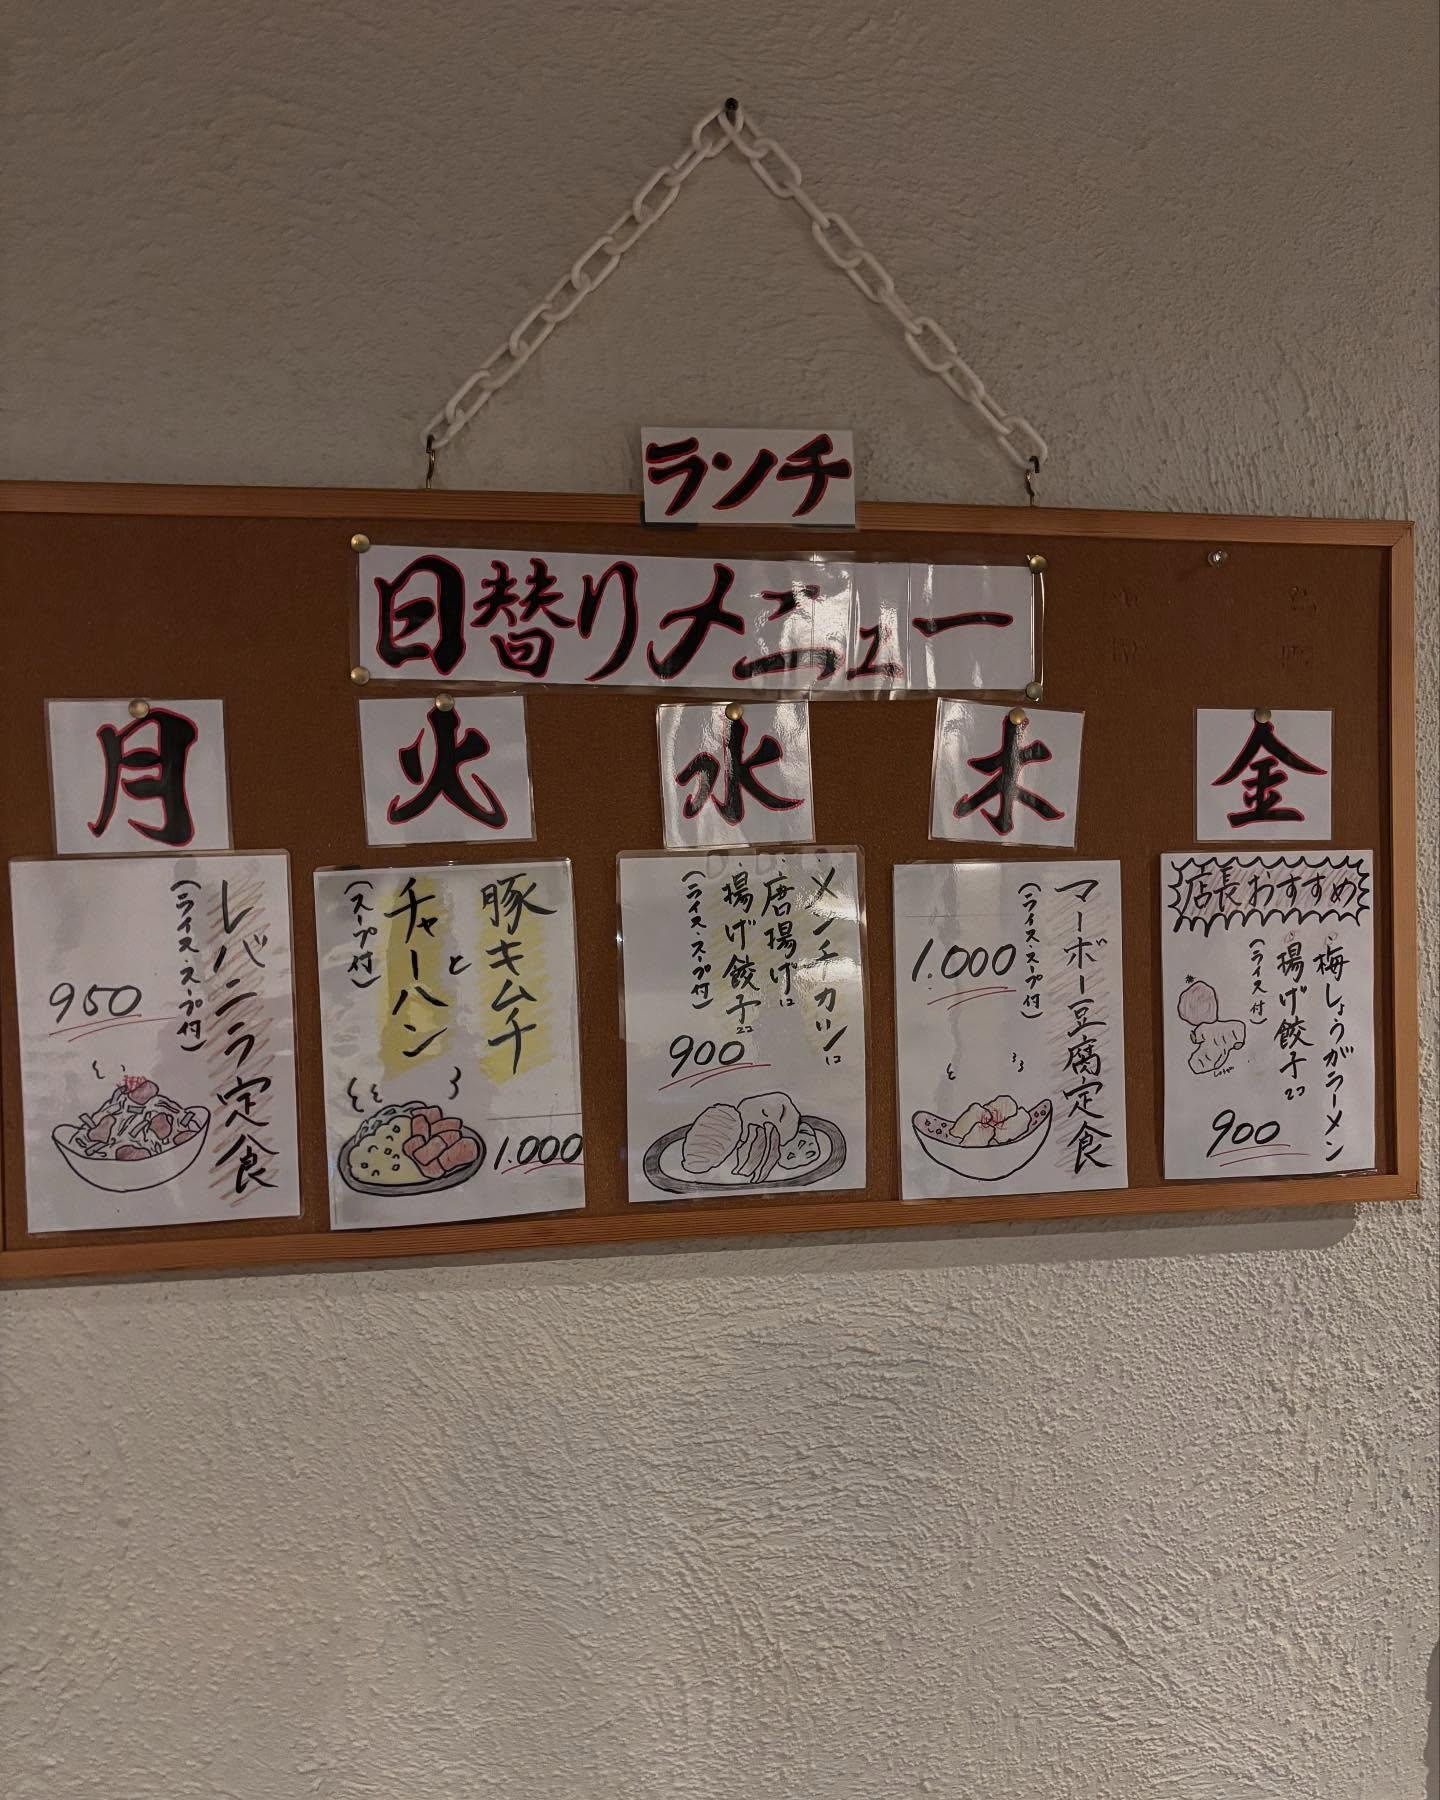 ランチ
日替りメニュー
月
レバニラ定食
(ライス・スープ付)
950
火
豚キムチ
と
チャーハン
(スープ付)
1.000
水
・メンチカツ1コ
・唐揚げ1コ
・揚げ餃子2コ
(ライス・スープ付)
900
木
マーボー豆腐定食
(ライス・スープ付)
1.000
金
店長おすすめ
・梅しょうがラーメン
・揚げ餃子2コ
(ライス付)
900